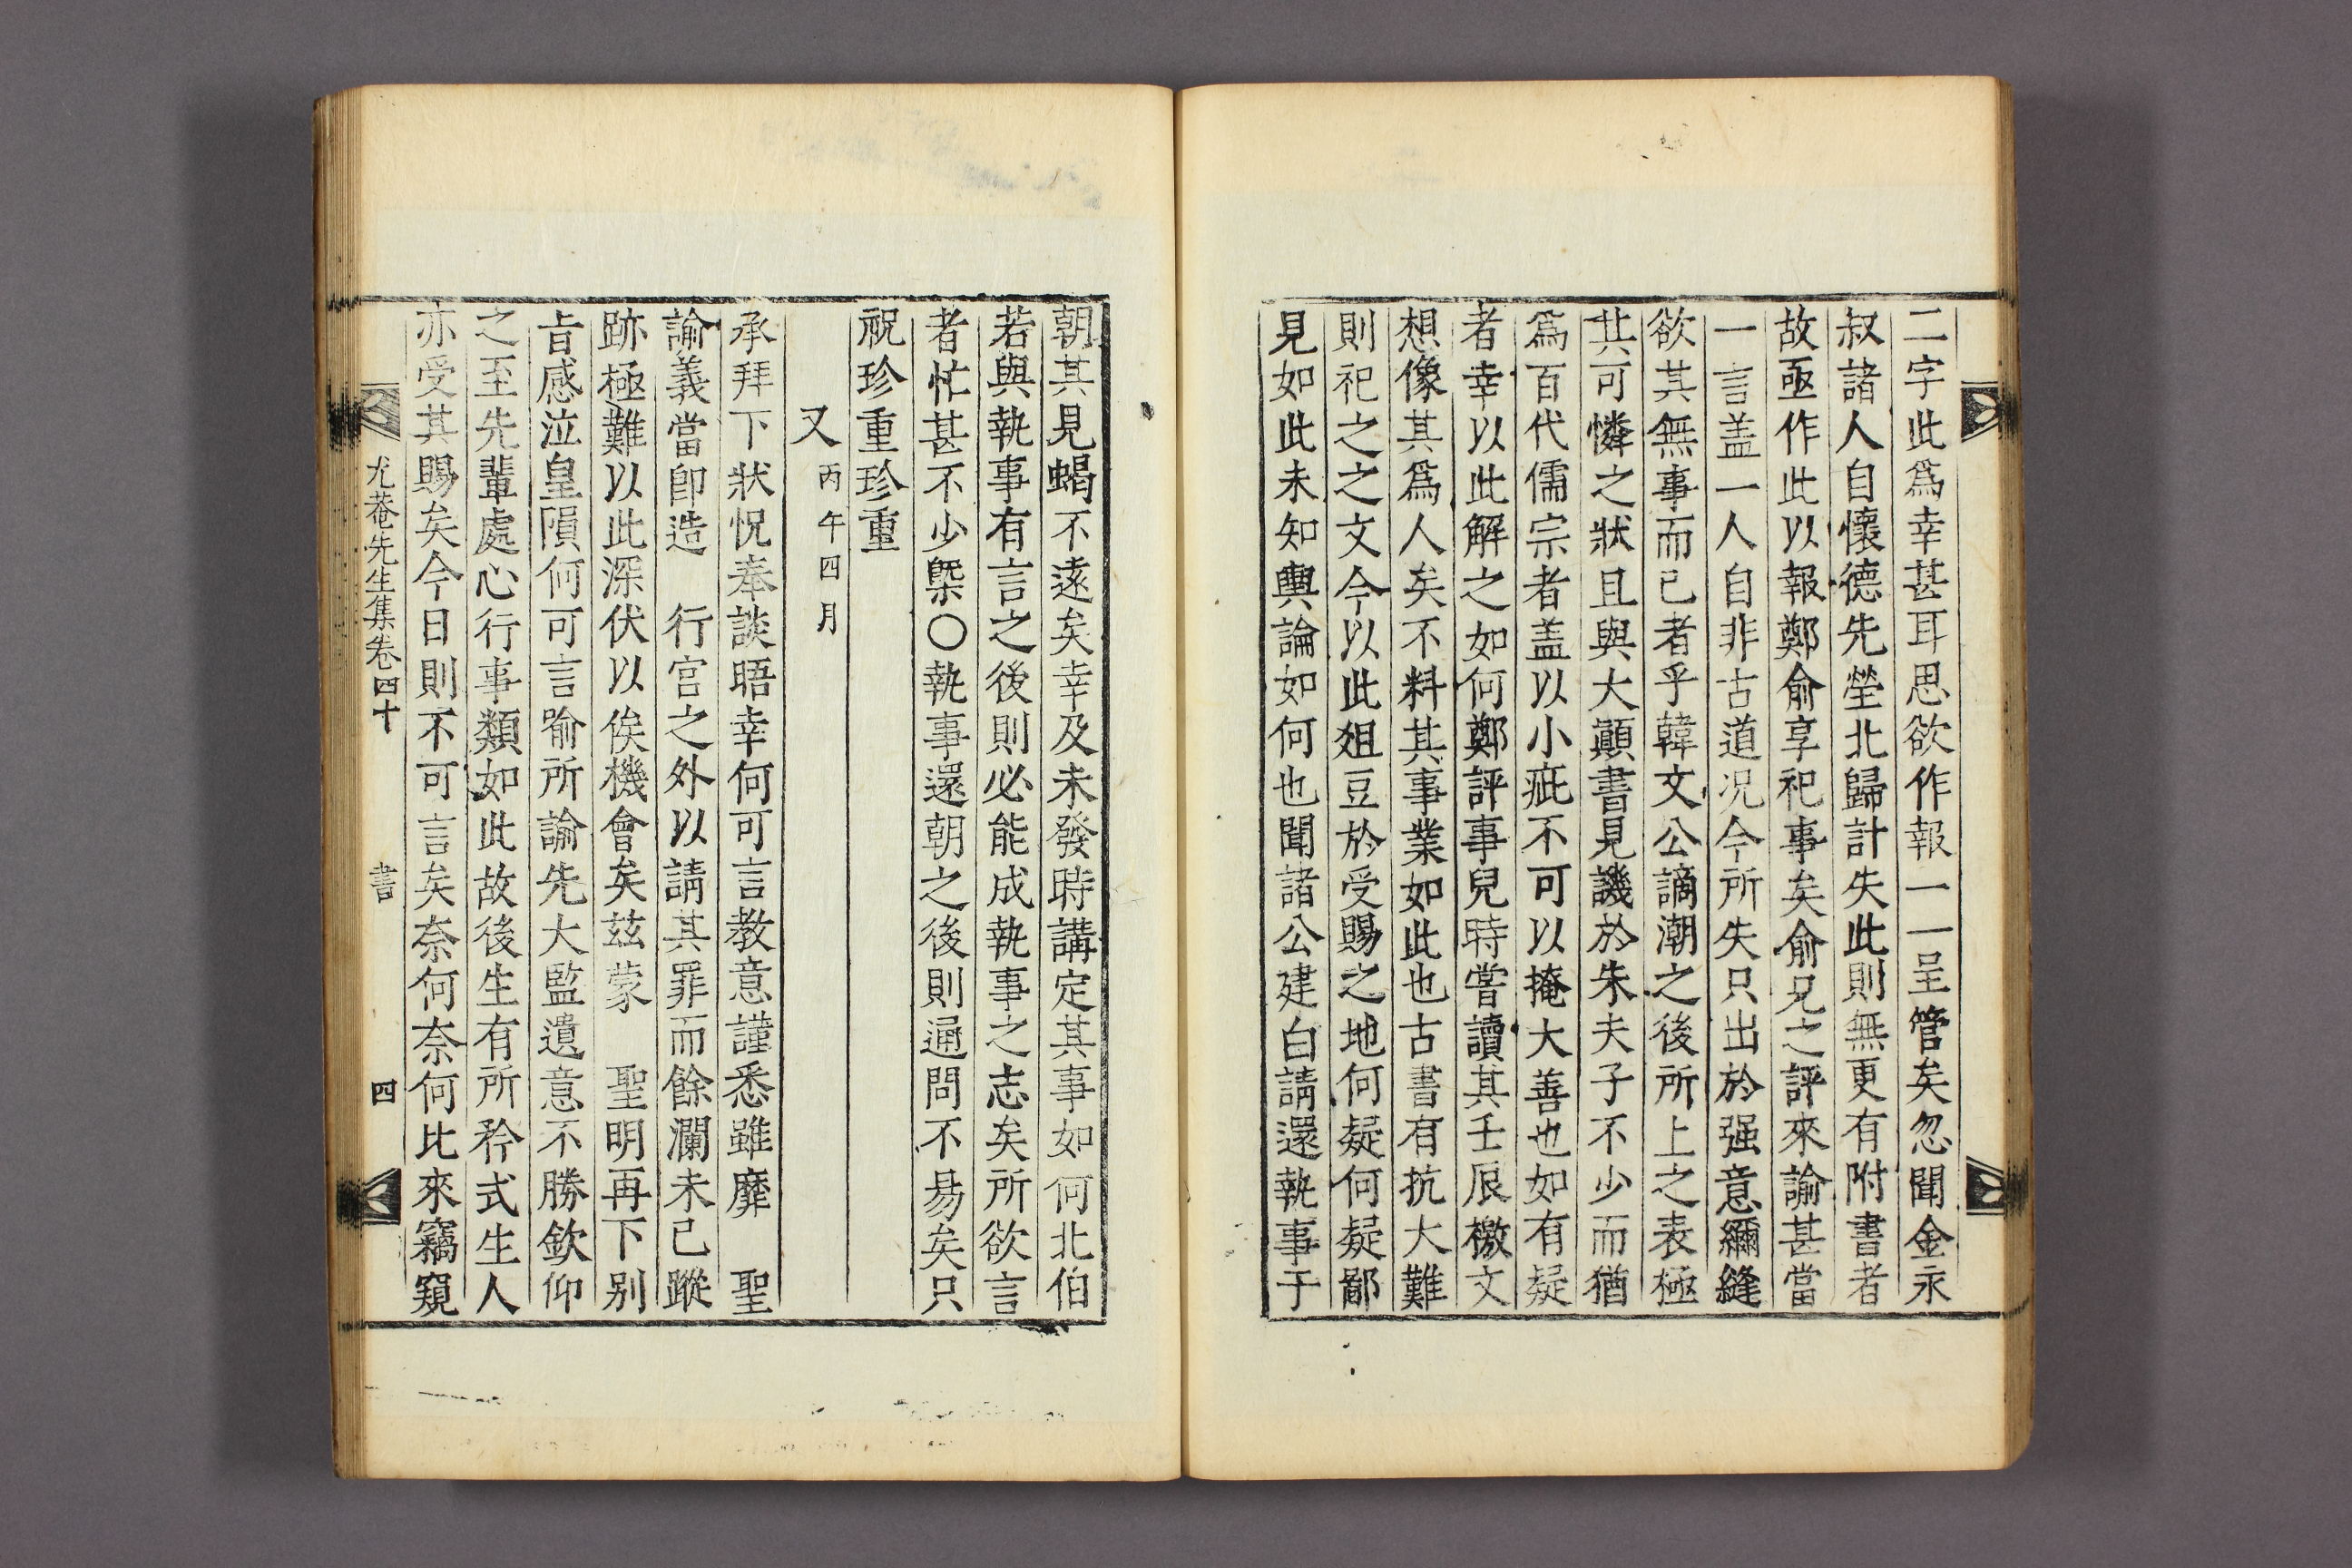 二字此爲幸甚耳思欲作報一一呈管矣忽聞金永
叔諸人自懷德先塋北歸計失此則無更有附書者
故亟作此以報鄭俞享祀事矣俞兄之評來諭甚當
一言盖一人自非古道况今所失只出於强意彌縫
欲其無事而已者乎韓文公謫潮之後所上之表極
其可憐之狀且與大顚書見譏於朱夫子不少而猶
爲百代儒宗者盖以小疵不可以掩大善也如有疑
者幸以此解之如何鄭評事兒時嘗讀其壬辰檄文
想像其爲人矣不料其事業如此也古書有抗大難
則祀之之文今以此俎豆於受賜之地何疑何疑鄙
見如此未知輿論如何也聞諸公建白請還執事于
朝其見蝎不遠矣幸及未發時講定其事如何北伯
若與執事有言之後則必能成執事之志矣所欲言
者忙甚不少槩○執事還朝之後則通問不易矣只
祝珍重珍重
又丙午四月
承拜下狀怳奉談晤幸何可言教意謹悉雖靡　聖
諭義當卽造　行宮之外以請其罪而餘瀾未已蹤
跡極難以此深伏以俟機會矣玆蒙　聖明再下别
旨感泣皇隕何可言喻所諭先大監遺意不勝欽仰
之至先輩處心行事類如此故後生有所矜式生人
亦受其賜矣今日則不可言矣奈何奈何比來竊窺
尤菴先生集卷四十　書　四